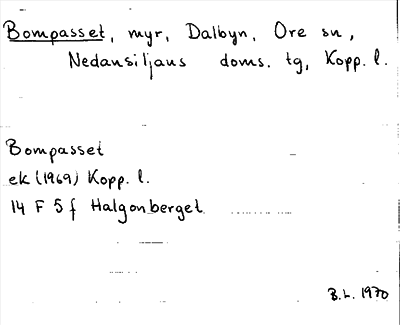 Bompasset, myr, Dalbyn, Ore sn,
Nedansiljans doms. tg, Kopp. l.
Bompasset
ek (1969) Kopp. l.
14 F 5 f Halgonberget
B.L. 1970